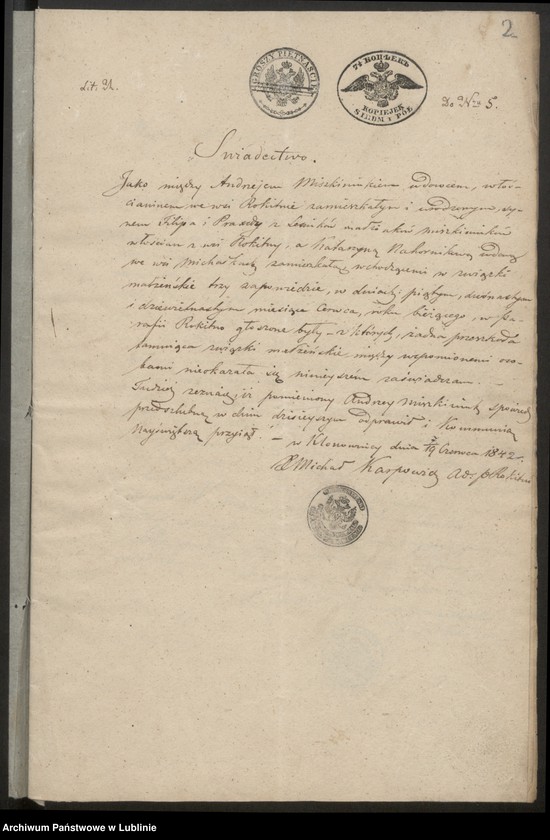 2
GROSZY PIĘTNAŚCIE
7½ КОПѢЕКЪ
KOPIEJEK
SIEDM i PÓŁ
Lit. A.
Do Nro 5.
Swiadectwo.
Jako między Andrzejem Miszkiniukiem wdowcem, włos-
cianinem we wsi Rokitnie zamieszkałym i urodzonym, sy-
nem Filipa i Praxedy z małżonków Miszkiniuków
włościan z wsi Rokitny, a Katarzyną wdową
we wsi zamieszkałą wchodzącemi w związki
małżeńskie trzy zapowiedzie, w dniach piątym, dwónastym
i dziewiętnastym miesiąca Czerwca, roku bieżącego, w pa-
rafii Rokitno głoszone były – z których, żadna przeszkoda
tamująca związki małżeńskie między wspomnionemi oso-
bami nieokazała się niniejszém zaświadczam. –
Tudzież zeznaję iż pomieniony Andrzey Miszkiniuk spowiedź
przedslubną w dniu dzisieyszym odprawił i Kommunią
Nayświętszą przyiął. – w Klonownicy dnia 7/19 Czerwca 1842 r.
X Michał Karpowicz Adr p. Rokitno
Archiwum Państwowe w Lublinie